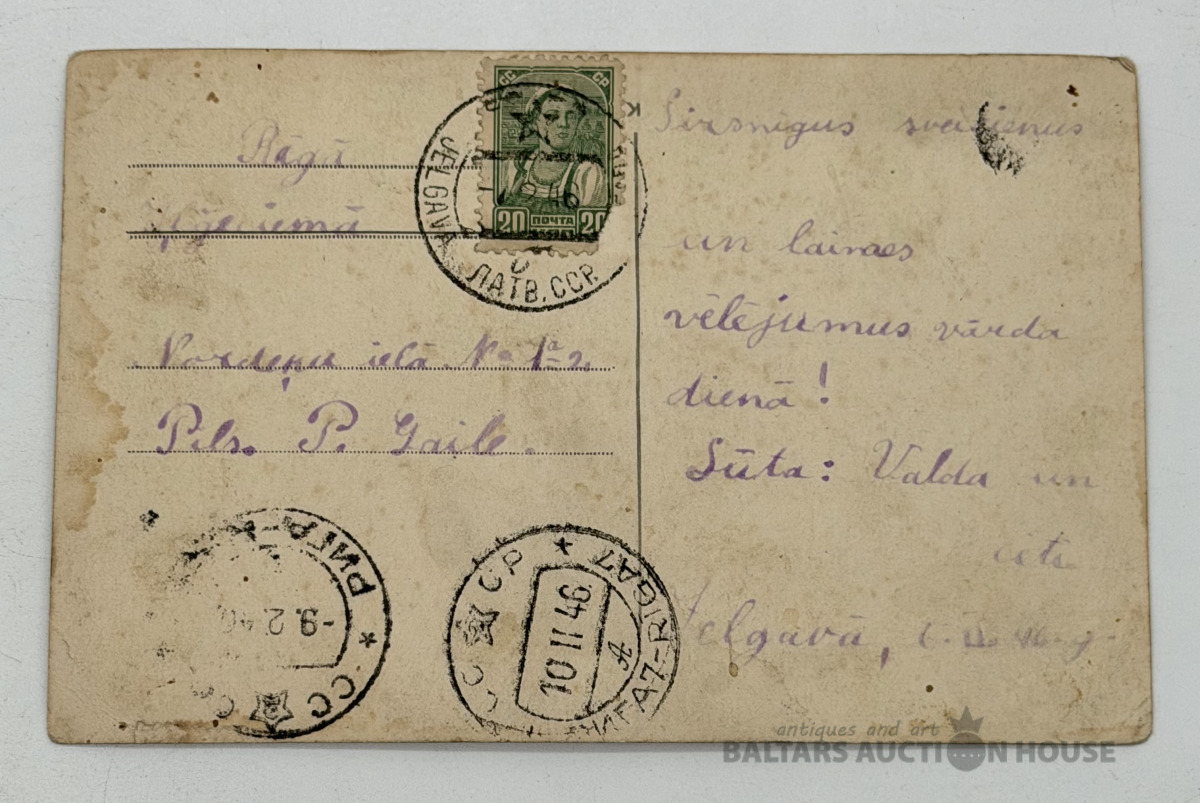 Rīgā
Nordeķu ielā No 1ª 2.
Pils. P. Gaile.
СС СР
20 ПОЧТА 20
JELGAVA
ЛАТВ. ССР.
К
Sirsnīgus sveicienus
un laimes
vēlējumus vārda
dienā!
Sūta: Valda un
Jelgavā,
РИГА
-9.2.46
СС
СССР
РИГА7-RIGA7
10 II 46
A
antiques and art
BALTARS AUCTION HOUSE